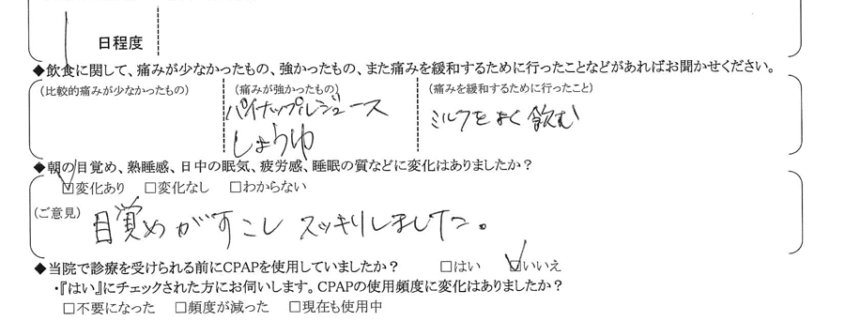 日程度
◆飲食に関して、痛みが少なかったもの、強かったもの、また痛みを緩和するために行ったことなどがあればお聞かせください。
(比較的痛みが少なかったもの) (痛みが強かったもの) (痛みを緩和するために行ったこと)
パイナップルジュース ミルクをよく飲む
しょうゆ
◆朝の目覚め、熟睡感、日中の眠気、疲労感、睡眠の質などに変化はありましたか？
☑変化あり □変化なし □わからない
(ご意見)
目覚めがすこしスッキリしました。
◆当院で診療を受けられる前にCPAPを使用していましたか？ □はい ☑いいえ
・『はい』にチェックされた方にお伺いします。CPAPの使用頻度に変化はありましたか？
□不要になった □頻度が減った □現在も使用中